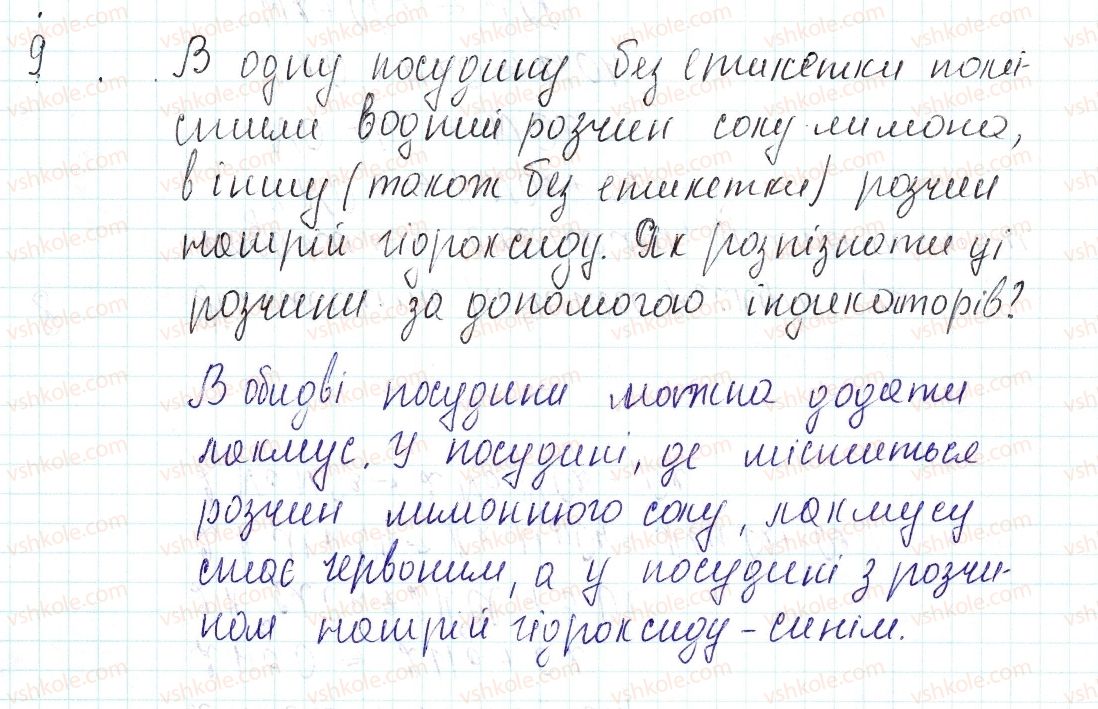 9. В одну посудину без етикетки помі-
стили водний розчин соку лимона,
в іншу (також без етикетки) розчин
натрій гідроксиду. Як розпізнати ці
розчини за допомогою індикаторів?
В обидві посудини можна додати
лакмус. У посудині, де міститься
розчин лимонного соку, лакмусу
стає червоним, а у посудині з розчи-
ном натрій гідроксиду - синім.